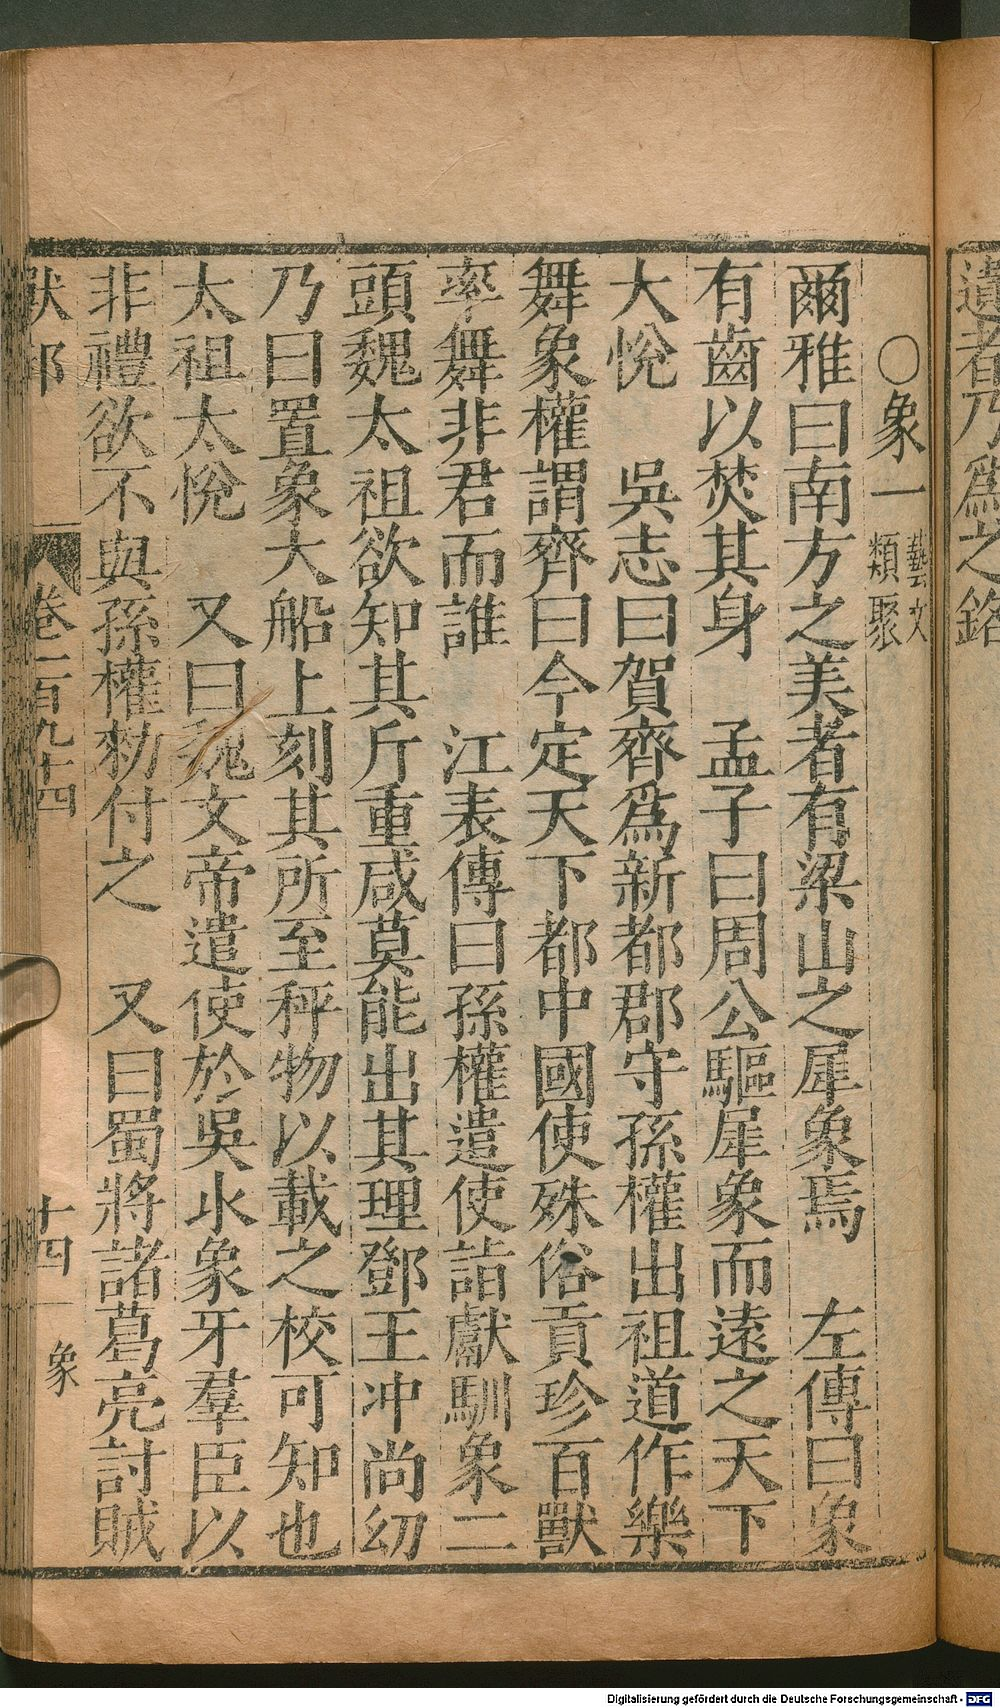 遺者乃爲之
○象一 藝文類聚
爾雅曰南方之美者有梁山之犀象焉　左傳曰象
有齒以焚其身　孟子曰周公驅犀象而遠之天下
大悅　吳志曰賀齊爲新都郡守孫權出祖道作樂
舞象權謂齊曰今定天下都中國使殊俗貢珍百獸
率舞非君而誰　江表傳曰孫權遣使詣獻馴象二
頭魏太祖欲知其斤重咸莫能出其理鄧王冲尚幼
乃曰置象大船上刻其所至秤物以載之校可知也
太祖太悅　又曰魏文帝遣使於吳求象牙羣臣以
非禮欲不與孫權勑付之　又曰蜀將諸葛亮討賊
獸部 卷一百九十四 十四 象
Digitalisierung gefördert durch die Deutsche Forschungsgemeinschaft - DFG